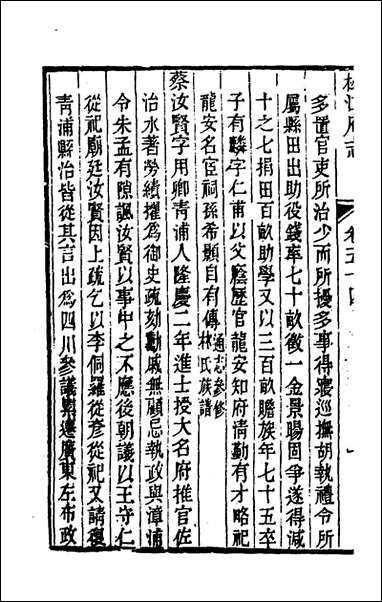 松江府志 卷五十四
多置官吏所治少而所擾多事得寢巡撫胡執禮令所
屬縣田出助役錢率七十畝徵一金景暘固爭遂得減
十之七捐田百畝助學又以三百畝贍族年七十五卒
子有麟字仁甫以父廕歷官龍安知府淸勤有才略祀
龍安名宦祠孫希顥自有傳通志參修林氏族譜
蔡汝賢字用卿靑浦人隆慶二年進士授大名府推官佐
治水著勞績擢爲御史疏劾勳戚無顧忌執政與漳浦
令朱孟有隙諷汝賢以事中之不應後朝議以王守仁
從祀廟廷汝賢因上疏乞以李侗羅從彥從祀又請復
靑浦縣治皆從其言出爲四川參議累遷廣東左布政